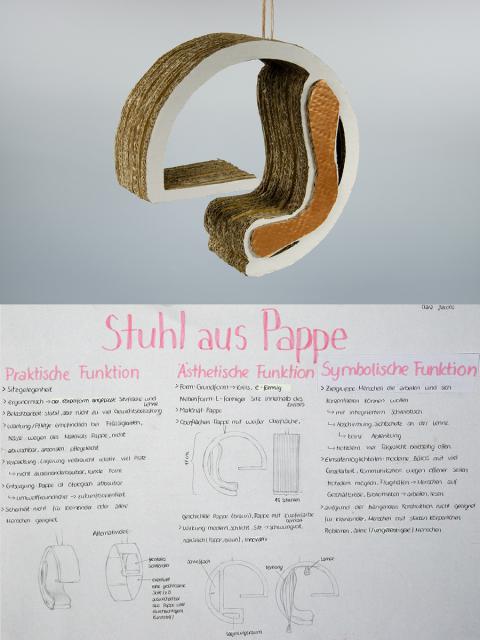 Stuhl aus Pappe
Praktische Funktion
> Sitzgelegenheit
> ergonomisch → der Körperform angepasste Sitzfläche und Lehne
> Belastbarkeit: stabil, aber nicht zu viel Gewichtsbelastung
> Wartung/Pflege: empfindlich bei Flüssigkeiten,
Nässe wegen des Materials Pappe, nicht
abwaschbar, ansonsten pflegeleicht
> Verpackung/Lagerung: verbraucht relativ viel Platz
↳ nicht auseinanderbaubar, runde Form
> Entsorgung: Pappe ist ökologisch abbaubar
↳ umweltfreundliche → zukunftsorientiert
> Sicherheit: nicht für Kleinkinder oder ältere
Menschen geeignet
Alternativen:
Ästhetische Funktion
> Form: Grundform → Kreis, C-förmig
Nebenform: L-förmiger Sitz innerhalb des Kreises
> Material: Pappe
> Oberflächen: Pappe mit weißer Oberfläche,
geschichtete Pappe (braun), Pappe mit kupferfarbe
> Wirkung: modern, schlicht, Sitz → schwungvoll,
natürlich (Pappe, braun), innovativ
Symbolische Funktion
> Zielgruppe: Menschen die arbeiten und sich
konzentrieren können wollen
↳ mit integriertem Schreibtisch
↳ Abschirmung: Sichtschutz an der Lehne
↳ keine Ablenkung
↳ trotzdem vier Tageslicht beidseitig offen
> Einsatzmöglichkeiten: moderne Büros mit viel
Einzelarbeit, Kommunikation wegen offener Seiten
trotzdem möglich, Flughäfen → Menschen auf
Geschäftsreise, Bibliotheken → arbeiten, lesen
> aufgrund der hängenden Konstruktion nicht geeignet
für Kleinkinder, Menschen mit starken körperlichen
Problemen, ältere (/ungelenkige) Menschen